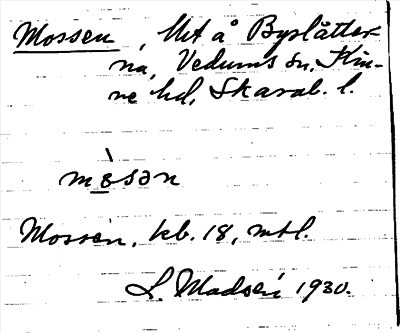 Mossen, Ut å Byslåtter-
na, Vedums sn, Kin-
ne hd, Skarab. l.
mòsən
Mossen, kb. 18, mtl.
L. Madsén 1930.